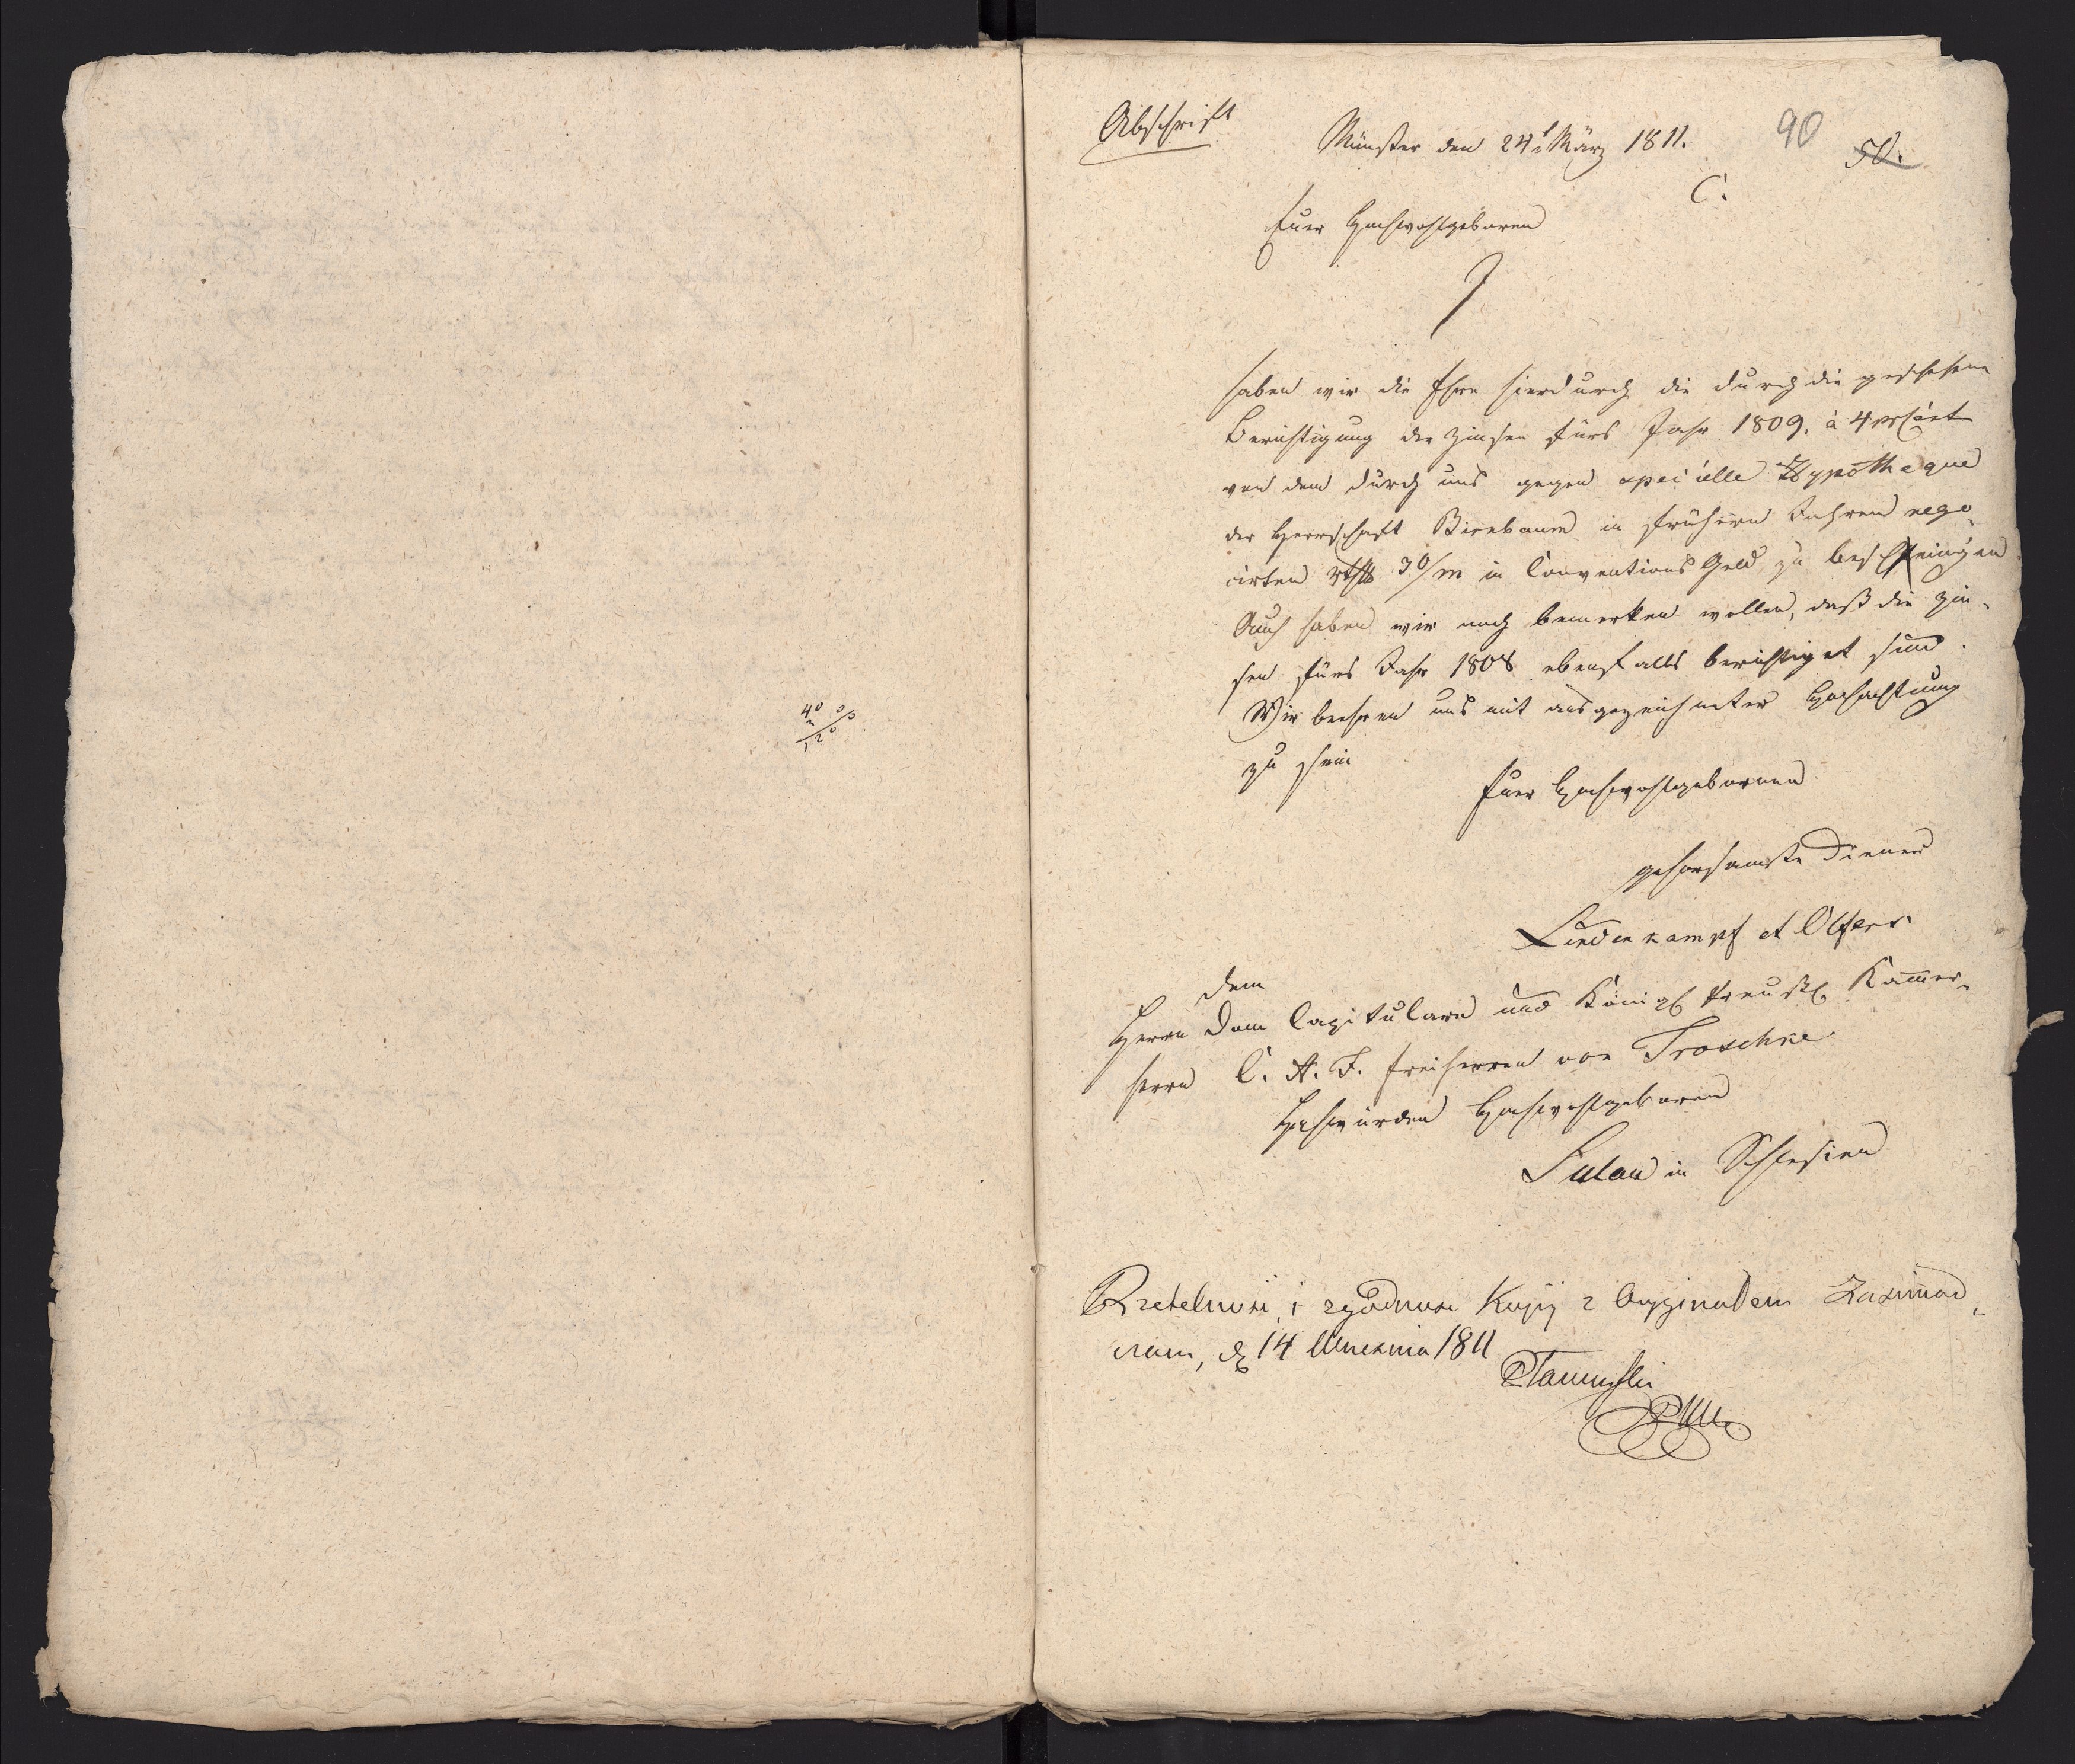 40 00
120
Abschrifft
Münster den 24t März 1811.
90
50.
C.
Euer Hochwohlgeboren
haben wir die Ehre hierdurch die durch die geschehene
Berichtigung der Zinsen fürs Jahr 1809. à 4 prCent
von dem durch uns gegen specielle Hypotheque
der Herrschaft Birnbaum in frühern Jahren nego-
cirten rthlr 30/m in Conventions Geld zu bescheinigen
Auch haben wir noch bemerken wollen, daß die Zin-
sen fürs Jahr 1808 ebenfalls berichtiget sind.
Wir beehren uns mit ausgezeichneter Hochachtung
zu sein
Euer Hochwohlgebornen
gehorsamste Diener
Lindenkampf et Olfers
Dem
Herrn Dom Capitularn und Königl Preußl Kammer-
herrn C. A. F. Freiherren von Troschke
Hochwürden Hochwohlgeboren
Sulau in Schlesien
Rzetelność i zgodność Kopij z Oryginałem Zaświad-
czam, d 14 Września 1811